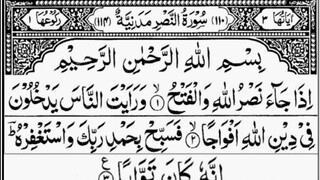 اٰيَاتُهَا ٣ (١١٠) سُوْرَةُ النَّصْرِ مَدَنِيَّةٌ (١١٤) رُكُوْعُهَا ١
بِسْمِ اللهِ الرَّحْمٰنِ الرَّحِيْمِ
اِذَا جَآءَ نَصْرُ اللهِ وَالْفَتْحُ ۙ﴿١﴾ وَرَاَيْتَ النَّاسَ يَدْخُلُوْنَ
فِيْ دِيْنِ اللهِ اَفْوَاجًا ۙ﴿٢﴾ فَسَبِّحْ بِحَمْدِ رَبِّكَ وَاسْتَغْفِرْهُ ؕ
اِنَّهٗ كَانَ تَوَّابًا ﴿٣﴾